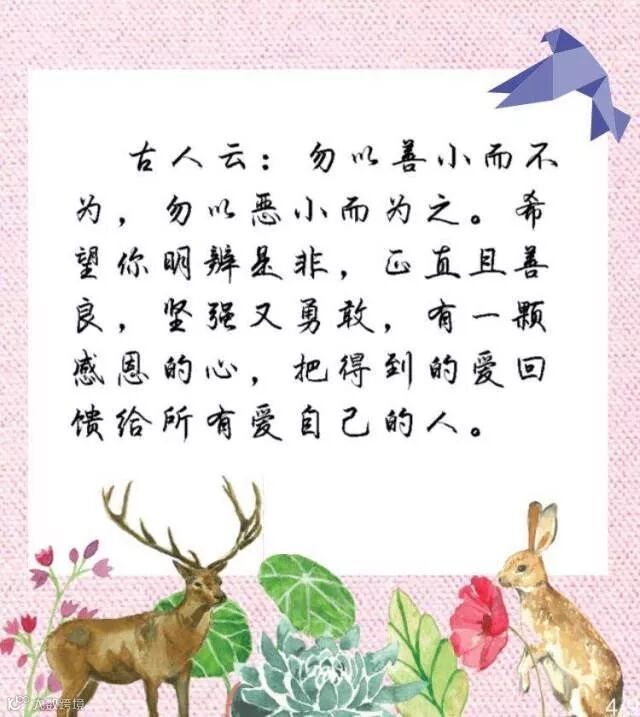 古人云：勿以善小而不
为，勿以恶小而为之。希
望你明辨是非，正直且善
良，坚强又勇敢，有一颗
感恩的心，把得到的爱回
馈给所有爱自己的人。
大数跨境
4